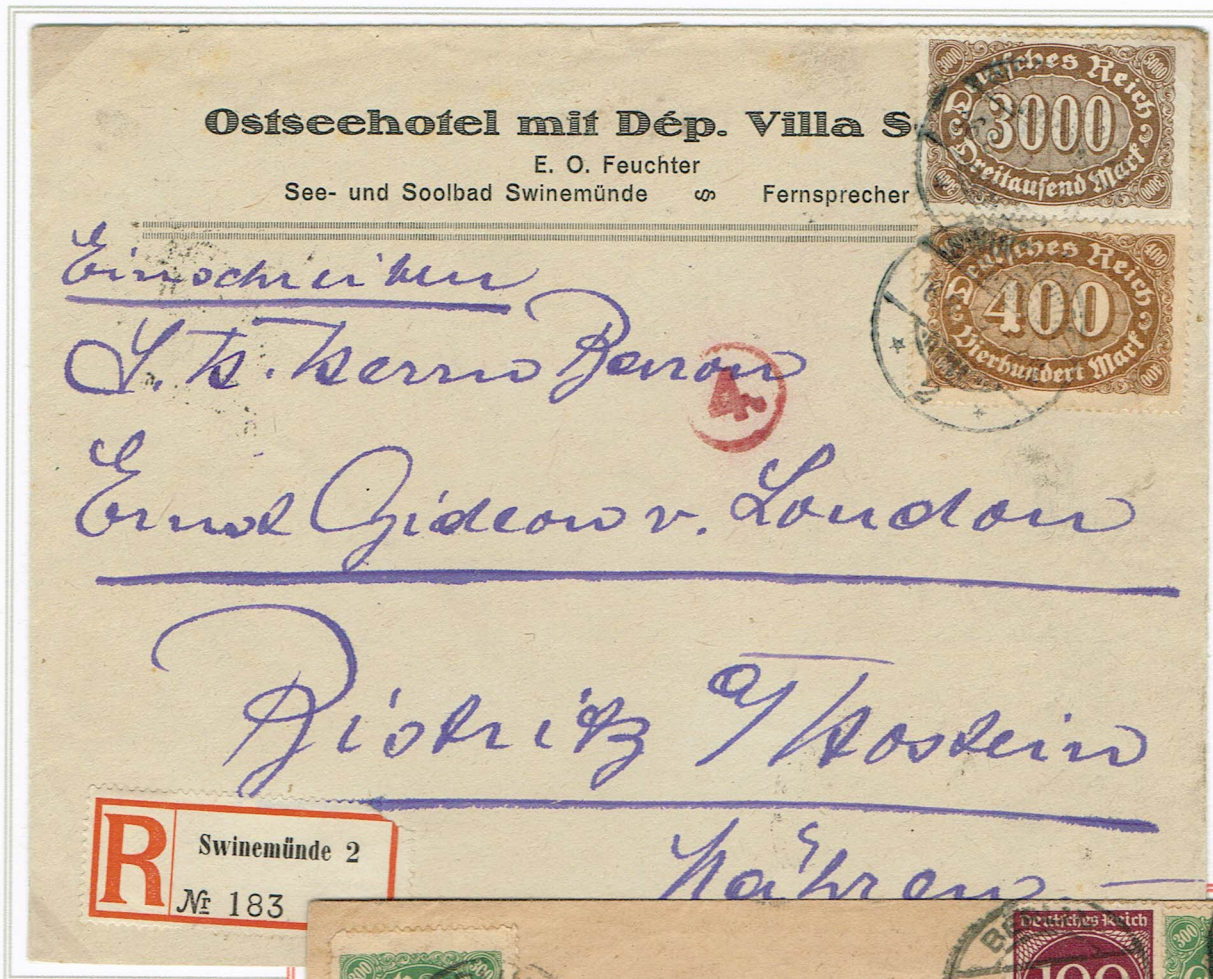 Ostseehotel mit Dép. Villa S
E. O. Feuchter
See- und Soolbad Swinemünde § Fernsprecher
3000
Deutsches Reich
3000
3000
Dreitausend Mark
3000
3000
400
Deutsches Reich
400
Vierhundert Mark
400
Einschreiben
S. H. Herrn Baron
4
Ernst Gideon v. London
Bistritz a/Hostein
Mähren
R
Swinemünde 2
№ 183
Deutsches Reich
300